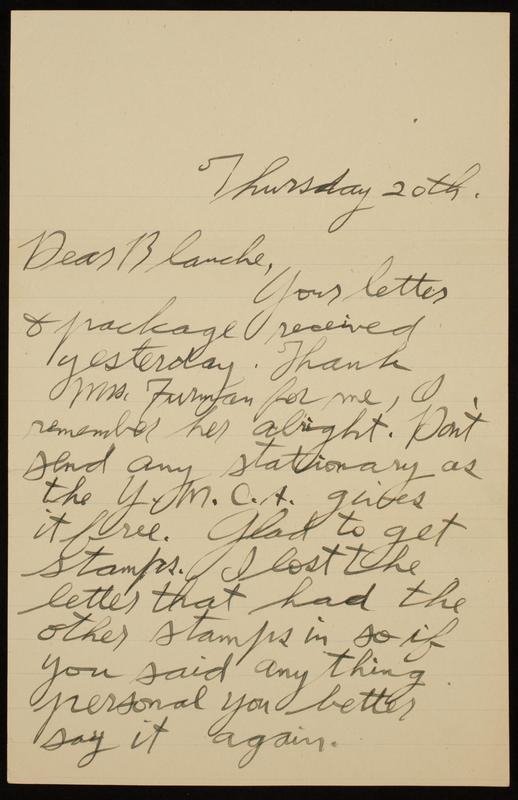 Thursday 20th.
Dear Blanche,
Your letter
& package received
yesterday. Thank
Mrs. Furman for me, I
remember her alright. Don't
send any stationary as
the Y.M.C.A. gives
it free. Glad to get
stamps. I lost the
letter that had the
other stamps in so if
you said any thing
personal you better
say it again.